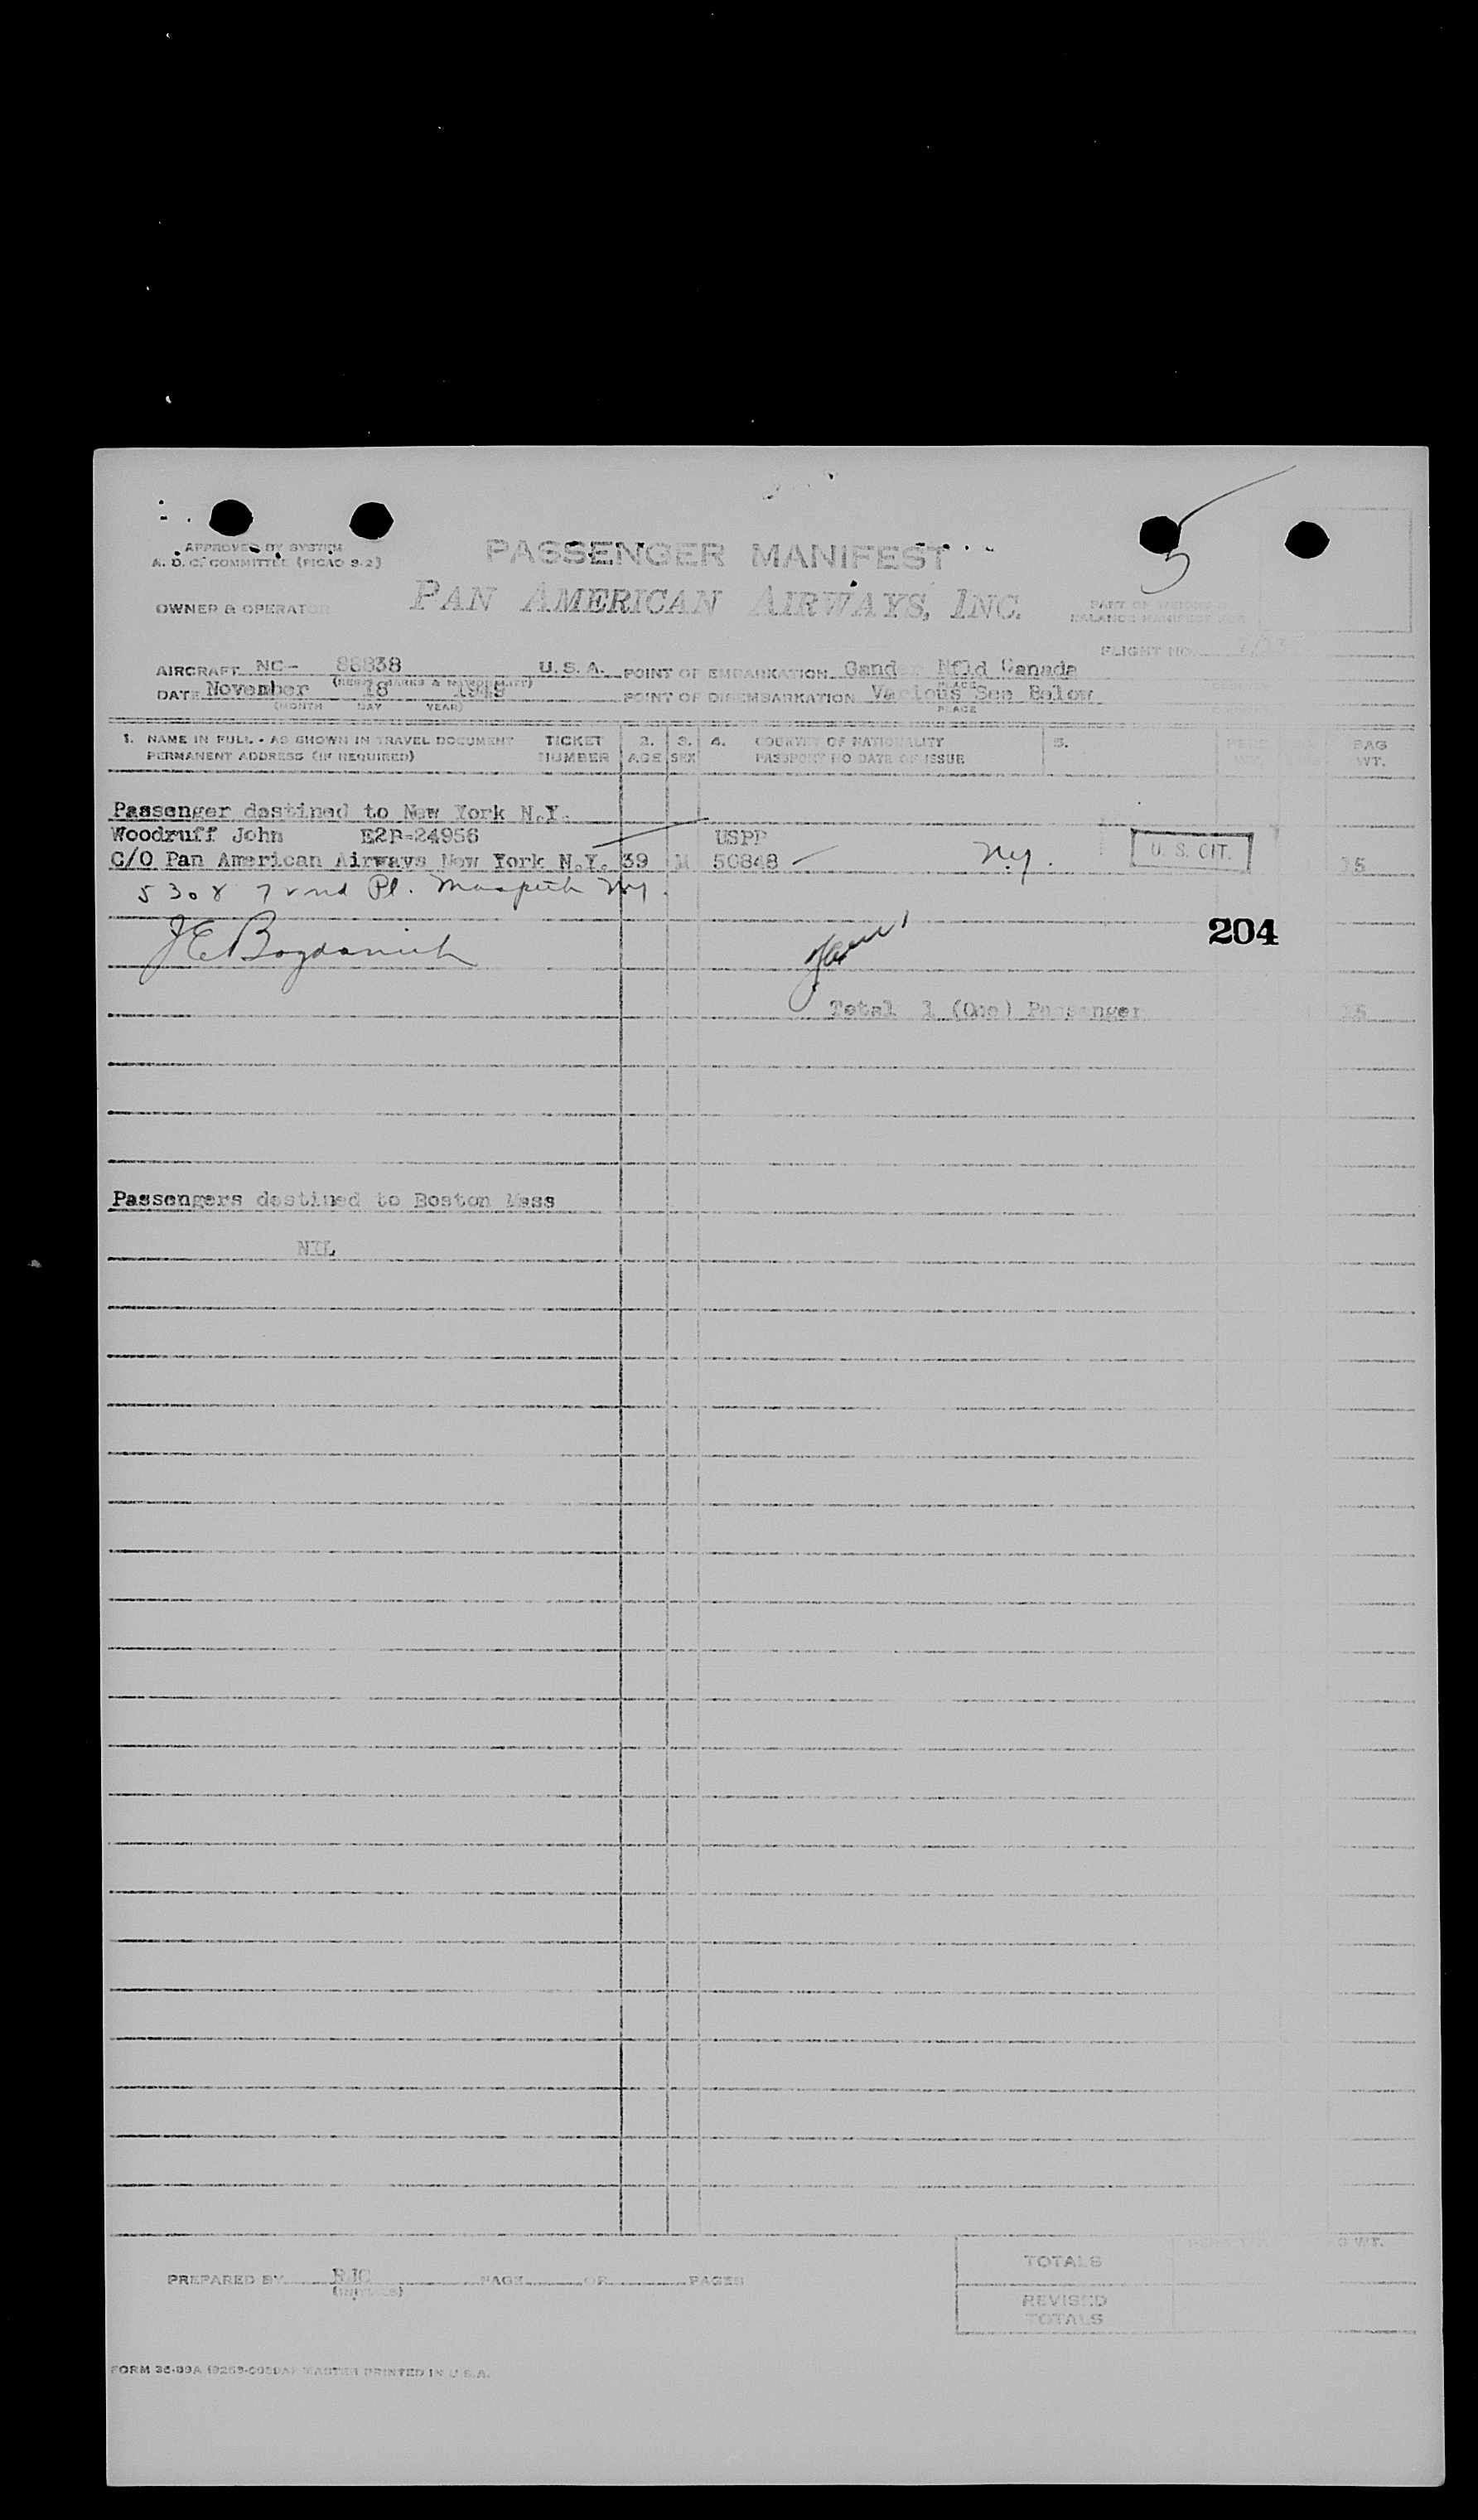 APPROVED BY SYSTEM
A. D. C. COMMITTEE (PICAO S-2)
PASSENGER MANIFEST
5
OWNER & OPERATOR
PAN AMERICAN AIRWAYS, INC.
FLIGHT NO.
AIRCRAFT NC- 88838 U. S. A. POINT OF EMBARKATION Gander Nfld Canada
DATE November 18 1949 POINT OF DISEMBARKATION Various See Below
(MONTH DAY YEAR) PLACE
1. NAME IN FULL - AS SHOWN IN TRAVEL DOCUMENT TICKET 2. 3. 4. COUNTRY OF NATIONALITY 5. BAG
PERMANENT ADDRESS (IF REQUIRED) NUMBER AGE SEX PASSPORT NO DATE OF ISSUE WT.
Passenger destined to New York N.Y.
Woodruff John E2R-24956 USPP
C/O Pan American Airways New York N.Y. 39 M 50848 Ny. U. S. CIT. 15
5308 72nd Pl. Maspeth Ny.
J E Bogdanich 204
Total 1 (One) Passenger 15
Passengers destined to Boston Mass
NIL
PREPARED BY RJC PAGE OF PAGES
(INITIALS)
TOTALS
REVISED
TOTALS
PRINTED IN U.S.A.